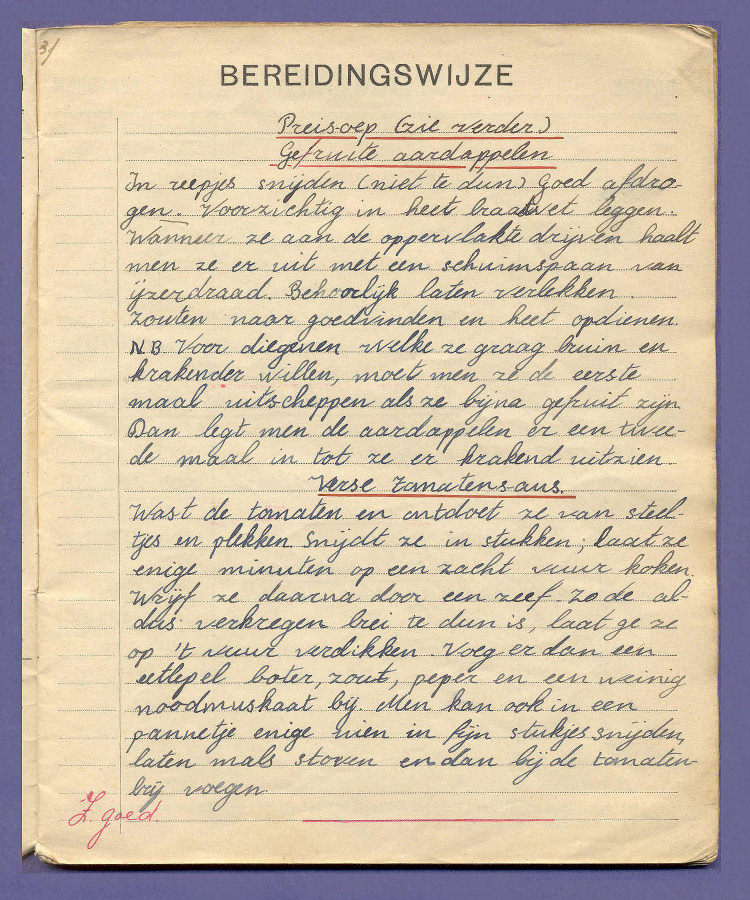 3/
BEREIDINGSWIJZE
Preisoep (zie verder.)
Gefruite aardappelen
In reepjes snijden (niet te dun) Goed afdro-
gen. Voorzichtig in heet braadvet leggen.
Wanneer ze aan de oppervlakte drijven haalt
men ze er uit met een schuimspaan van
ijzerdraad. Behoorlijk laten verlekken.
Zouten naar goedvinden en heet opdienen.
N.B. Voor diegenen welke ze graag bruin en
krakender willen, moet men ze de eerste
maal uitscheppen als ze bijna gefruit zijn
Dan legt men de aardappelen er een twee-
de maal in tot ze er krakend uitzien.
Verse tomatensaus.
Wast de tomaten en ontdoet ze van steel-
tjes en plekken. Snijdt ze in stukken; laat ze
enige minuten op een zacht vuur koken.
Wrijf ze daarna door een zeef. Zo de al-
dus verkregen brei te dun is, laat ge ze
op 't vuur verdikken. Voeg er dan een
eetlepel boter, zout, peper en een weinig
noodmuskaat bij. Men kan ook in een
pannetje enige uien in fijn stukjes snijden,
laten mals stoven en dan bij de tomaten-
brij voegen
Z. goed.